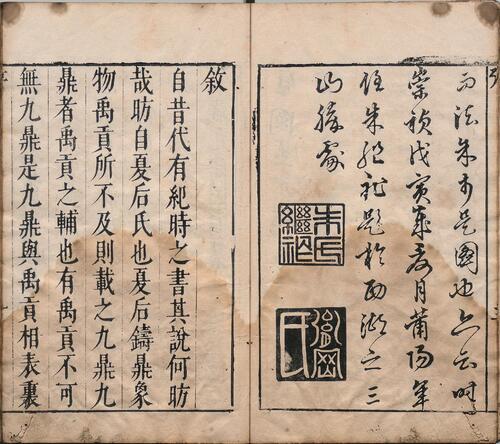 是圖也亦云時
崇禎戊寅年夏月莆陽年
侄朱繼祚題於西湖之三
山勝處
朱氏繼祚
胤岡氏
敘
自昔代有紀時之書其說何昉
哉昉自夏后氏也夏后鑄鼎象
物禹貢所不及則載之九鼎九
鼎者禹貢之輔也有禹貢不可
無九鼎是九鼎與禹貢相表裏